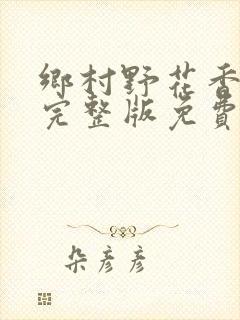 鄉村野花香
完整版免費
朵彥彥